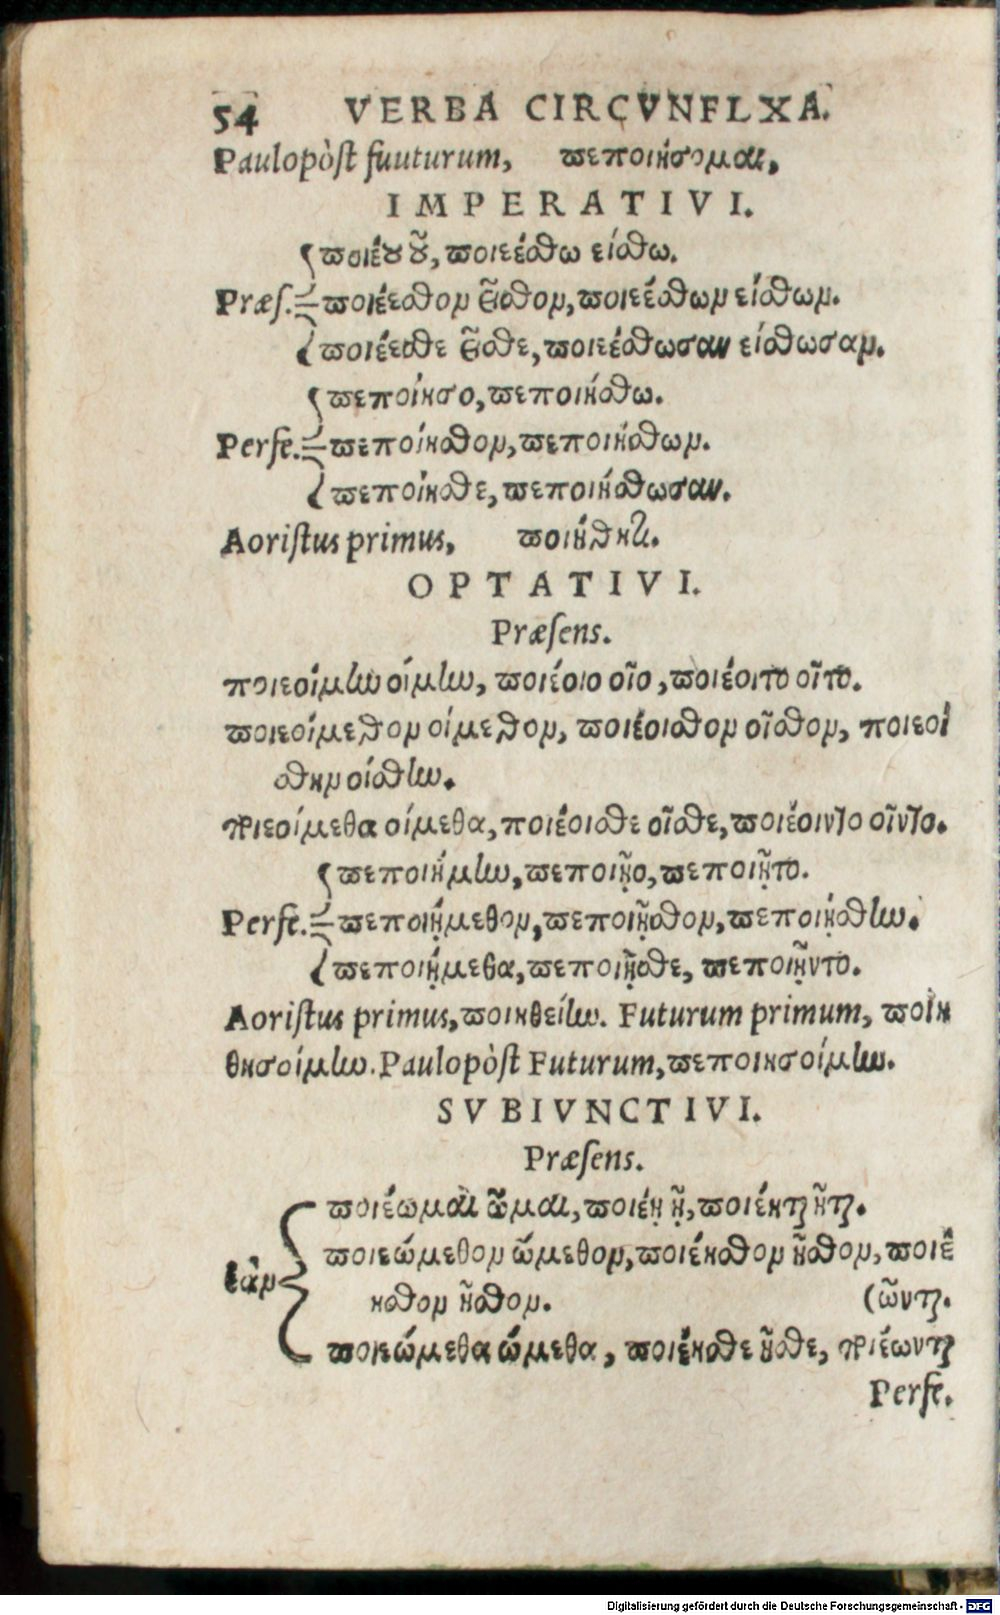 54 VERBA CIRCVNFLXA.
Paulopòst fuuturum, πεποιήσομαι,
IMPERATIVI.
ποιέου οῦ, ποιεέσθω είσθω.
Præs. ποιέεσθον εῖσθον, ποιεέσθων είσθων.
ποιέεσθε εῖσθε, ποιεέσθωσαν είσθωσαν.
πεποίησο, πεποιήσθω.
Perfe. πεποίησθον, πεποιήσθων.
πεποίησθε, πεποιήσθωσαν.
Aoristus primus, ποιήθητι.
OPTATIVI.
Præsens.
ποιεοίμην οίμην, ποιέοιο οῖο, ποιέοιτο οῖτο.
ποιεοίμεθον οίμεθον, ποιέοισθον οῖσθον, ποιεοί
σθην οίσθην.
ποιεοίμεθα οίμεθα, ποιέοισθε οῖσθε, ποιέοιντο οῖντο.
πεποιήμην, πεποιῇο, πεποιῇτο.
Perfe. πεποιῄμεθον, πεποιῇσθον, πεποιῄσθην.
πεποιῄμεθα, πεποιῇσθε, πεποιῇντο.
Aoristus primus, ποιηθείην. Futurum primum, ποιη
θησοίμην. Paulopòst Futurum, πεποιησοίμην.
SVBIVNCTIVI.
Præsens.
ποιέωμαι ῶμαι, ποιέῃ ῇ, ποιέηται ῆται.
ἐὰν ποιεώμεθον ώμεθον, ποιέησθον ῆσθον, ποιέ
ησθον ῆσθον. (ῶνται.
ποιεώμεθα ώμεθα, ποιέησθε ῆσθε, ποιέωνται
Perfe.
Digitalisierung gefördert durch die Deutsche Forschungsgemeinschaft - DFG